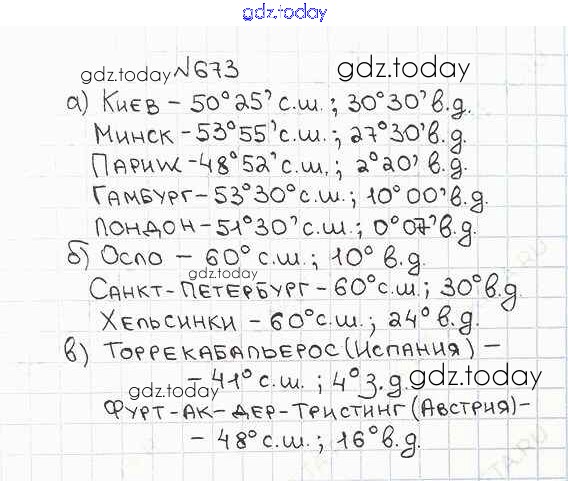 gdz.today
gdz.today №673 gdz.today
а) Киев - 50°25' с.ш.; 30°30' в.д.
Минск - 53°55' с.ш.; 27°30' в.д.
Париж - 48°52' с.ш.; 2°20' в.д.
Гамбург - 53°30° с.ш.; 10°00' в.д.
Лондон - 51°30' с.ш.; 0°07' в.д.
б) Осло - 60° с.ш.; 10° в.д.
gdz.today
Санкт-Петербург - 60° с.ш.; 30° в.д.
Хельсинки - 60° с.ш.; 24° в.д.
в) Торрекабальерос (Испания) -
- 41° с.ш.; 4° з.д. gdz.today
gdz.today
Фурт-ак-дер-Тристинг (Австрия) -
- 48° с.ш.; 16° в.д.
gdz.today